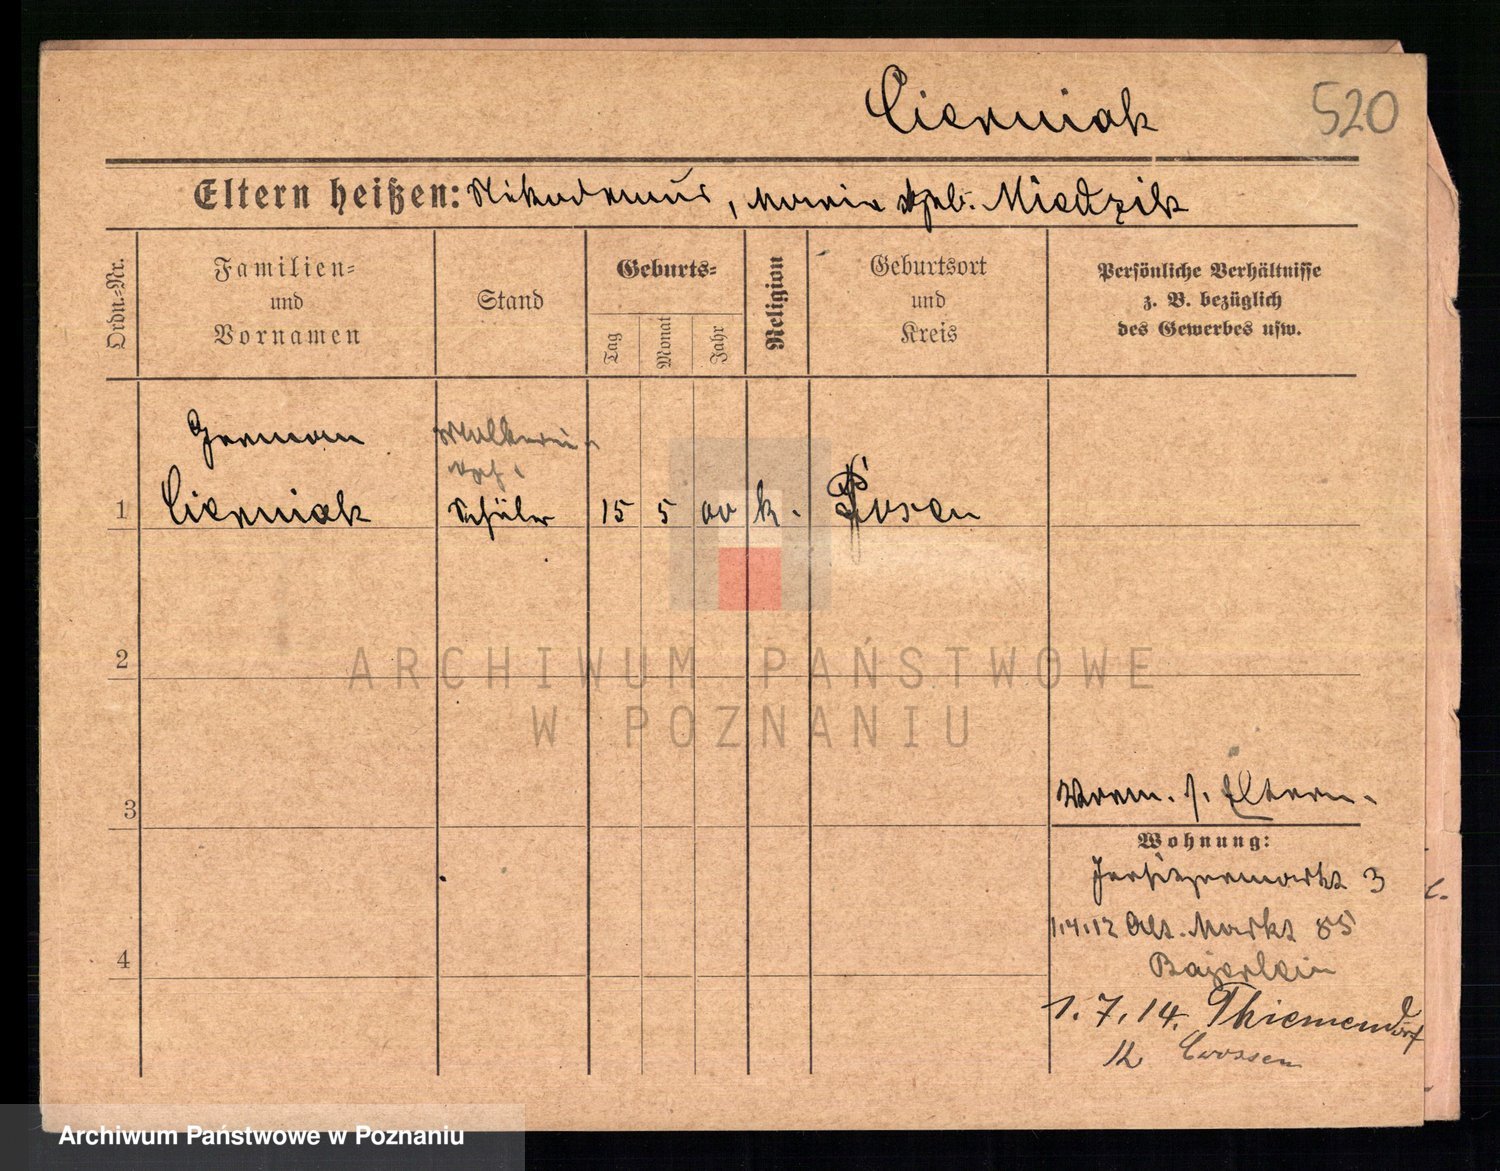 Cierniak
520
Eltern heißen: Nikodemus, Maria geb. Miedzik
Ordn.-Nr.
Familien-
und
Vornamen
Stand
Geburts-
Tag
Monat
Jahr
Religion
Geburtsort
und
Kreis
Persönliche Verhältnisse
z. B. bezüglich
des Gewerbes usw.
German
Molkerei-
1 Cierniak Schüler 15 5 00 k. Posen
2
3
Verm. s. Eltern.
Wohnung:
Jersitzermarkt 3
1.4.12 Alt. Markt 85
Bajerlein
4
1.7.14. Thiemendorf
K Crossen
ARCHIWUM PAŃSTWOWE
W POZNANIU
Archiwum Państwowe w Poznaniu